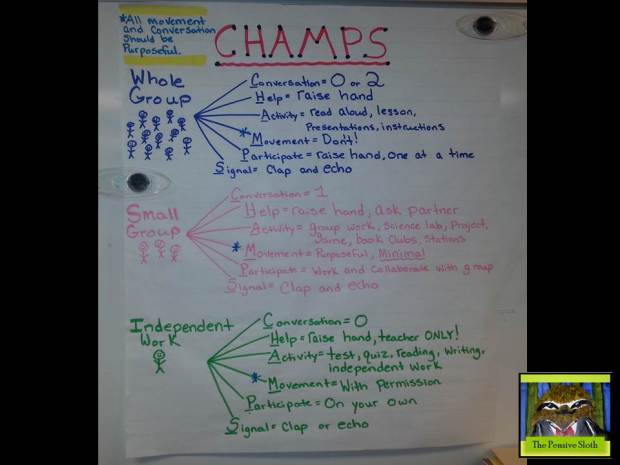 *All movement
and Conversation
Should be
Purposeful.
CHAMPS
Whole
Group
Conversation = 0 or 2
Help = raise hand
Activity = read aloud, lesson,
Presentations, instructions
*Movement = Don't!
Participate = raise hand, one at a time
Signal = Clap and echo
Small
Group
Conversation = 1
Help = raise hand, ask partner
Activity = group work, science lab, Project,
game, book Clubs, Stations
*Movement = Purposeful, Minimal
Participate = Work and Collaborate with group
Signal = Clap and echo
Independent
Work
Conversation = 0
Help = raise hand, teacher ONLY!
Activity = test, quiz, reading, writing,
independent work
*Movement = With Permission
Participate = On your own
Signal = Clap or echo
The Pensive Sloth